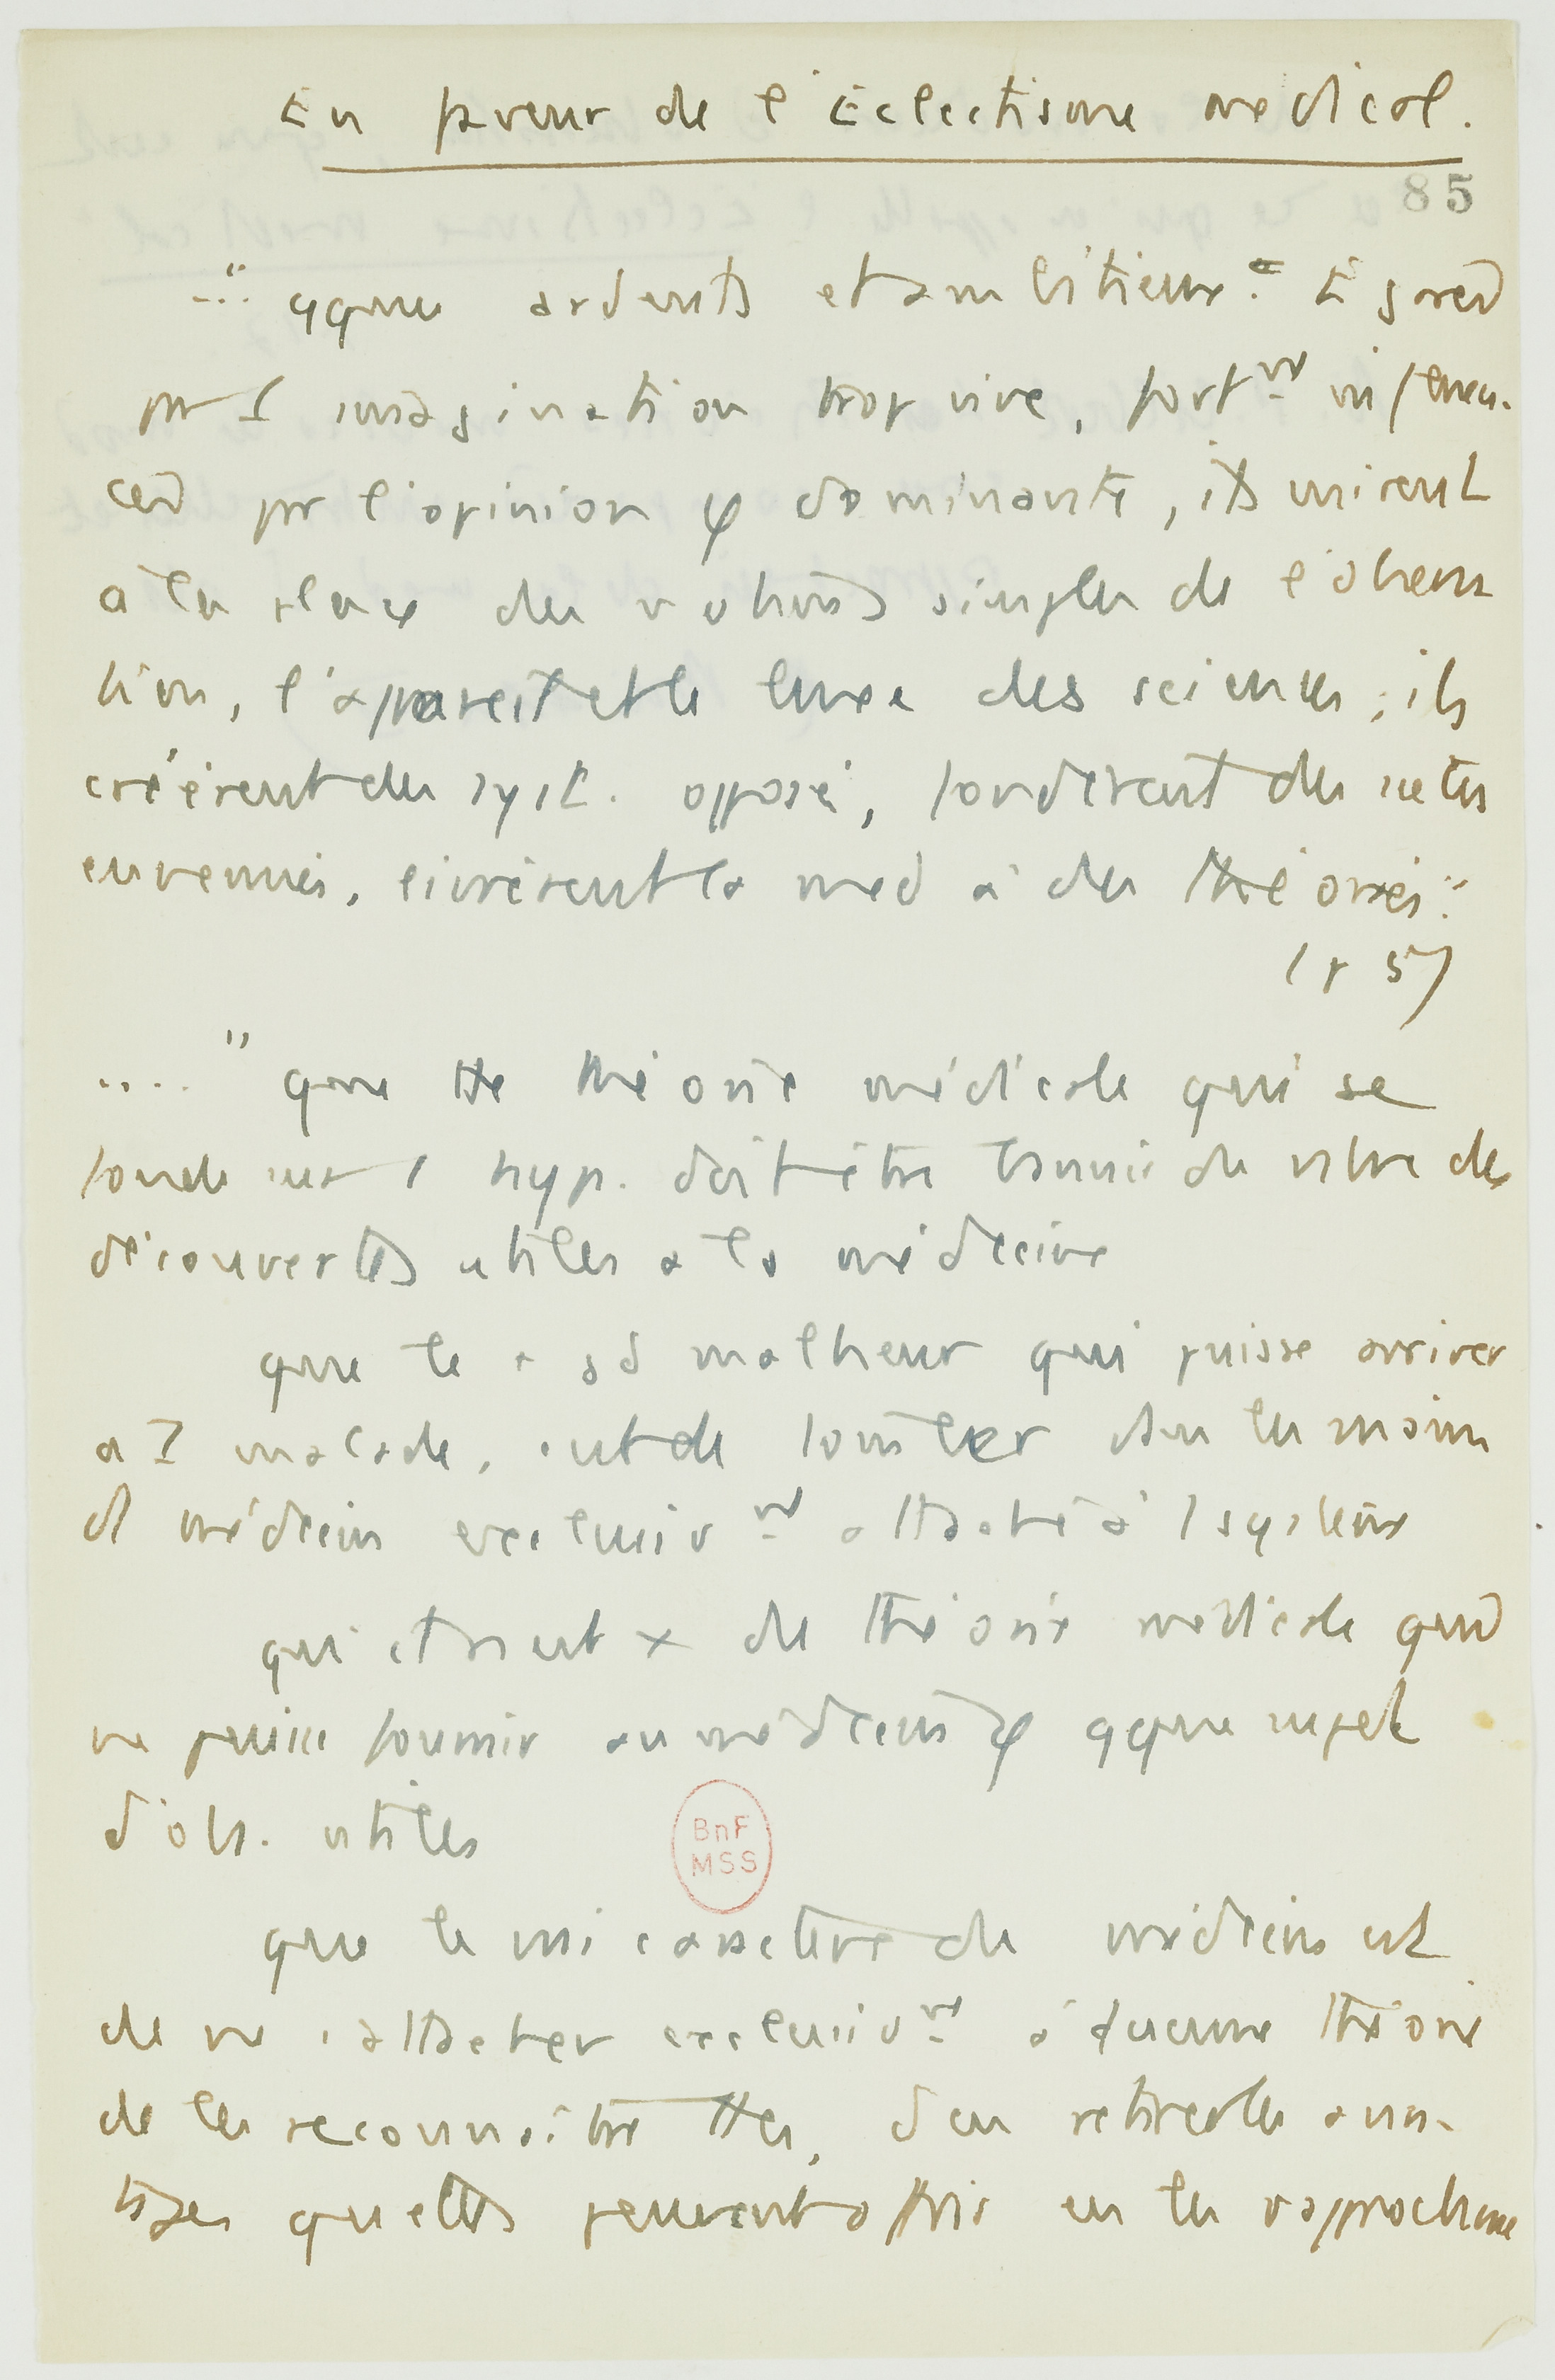 En faveur de l'Éclectisme médical.
85
..." qque ardents et ambitieux. Égarés
pr 1 imagination trop vive, fortnt influen-
cés pr l'opinion φ dominante, ils mirent
à la place des notions simples de l'observa
tion, l'appareil et le luxe des sciences ; ils
créèrent des syst. opposés, fondèrent des sectes
ennemies, livrèrent la med à des théories."
(p 5)
...." que tte théorie médicale qui se
fonde sur 1 hyp. doit être bannie du nbre des
découvertes utiles à la médecine
que le + gd malheur qui puisse arriver
à 1 malade, est de tomber dans les mains
d1 médecin exclusivnt attaché à 1 système
qu'il n'est de théorie médicale qui
ne puisse fournir au médecin φ qque sujet
d'obs. utiles
BnF
MSS
que le caractère du médecin est
de ne s'attacher exclusivnt à aucune théorie
de les reconnaître ttes, d'en retirer les avan-
tages qu'elles peuvent offrir en les rapprochant